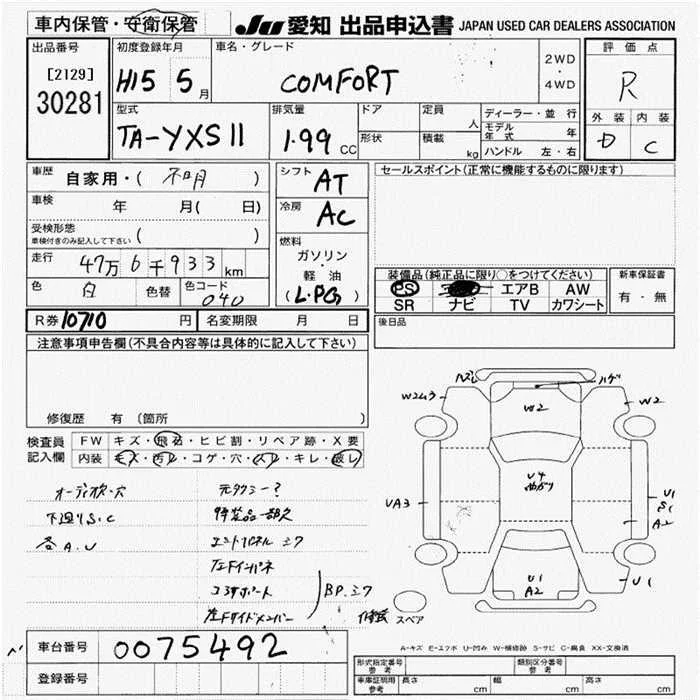 車内保管・守衛保管 JU 愛知 出品申込書 JAPAN USED CAR DEALERS ASSOCIATION
出品番号 [2129] 30281
初度登録年月 H15 5月
車名・グレード COMFORT
2WD ・ 4WD
評価点 R
外装 D 内装 C
型式 TA-YXS11
排気量 1.99 CC
ドア 形状
定員 人 積載 kg
ディーラー・並行
モデル年式 年
ハンドル 左・右
車歴 自家用・( 不明 )
車検 年 月( 日)
受検形態 車検付きのみ記入して下さい ( )
走行 47万6千933km
色 白 色替 色コード 040
シフト AT
冷房 AC
燃料 ガソリン・軽油 (LPG)
R券 10710 円 名変期限 月 日
セールスポイント(正常に機能するものに限ります)
装備品(純正品に限り○をつけてください)
PS エアB AW
SR ナビ TV カワシート
新車保証書 有・無
後日品
注意事項申告欄(不具合内容等は具体的に記入して下さい)
修復歴 有 〔箇所 〕
検査員記入欄
FW キズ・飛石・ヒビ割・リペア跡・X要
内装 キズ・汚レ・コゲ・穴・スレ・キレ・破レ
オーディオ欠・穴
下廻りS.C
各A.U
元タクシー?
特装品一部欠
エンドパネルミク
左Fインパネ
コアサポート
左Fサイドメンバー
B.P.ミク
修跡
ハズレ
ハゲ
W2ムラ
W2
W2
U4
UA3
U1
S1
A2
U1
A2
U1
スペア
A-キズ E-エクボ U-凹み W-補修跡 S-サビ C-腐食 XX-交換済
車台番号 0075492
登録番号
形式指定番号 参考
類別区分番号 参考
車庫証明用 参考 長さ cm 幅 cm 高さ cm